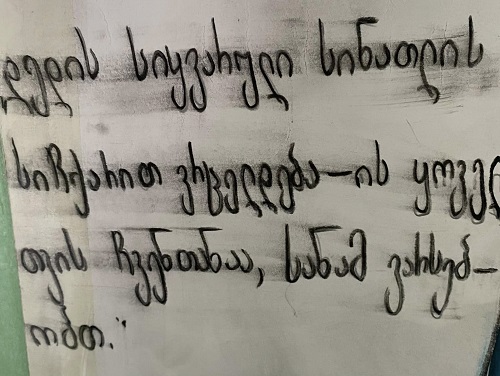 დედის სიყვარული სინათლის
სიჩქარით ვრცელდება-ის ყოველ
თვის ჩვენთანაა, სანამ ვარსებ-
ობთ.”